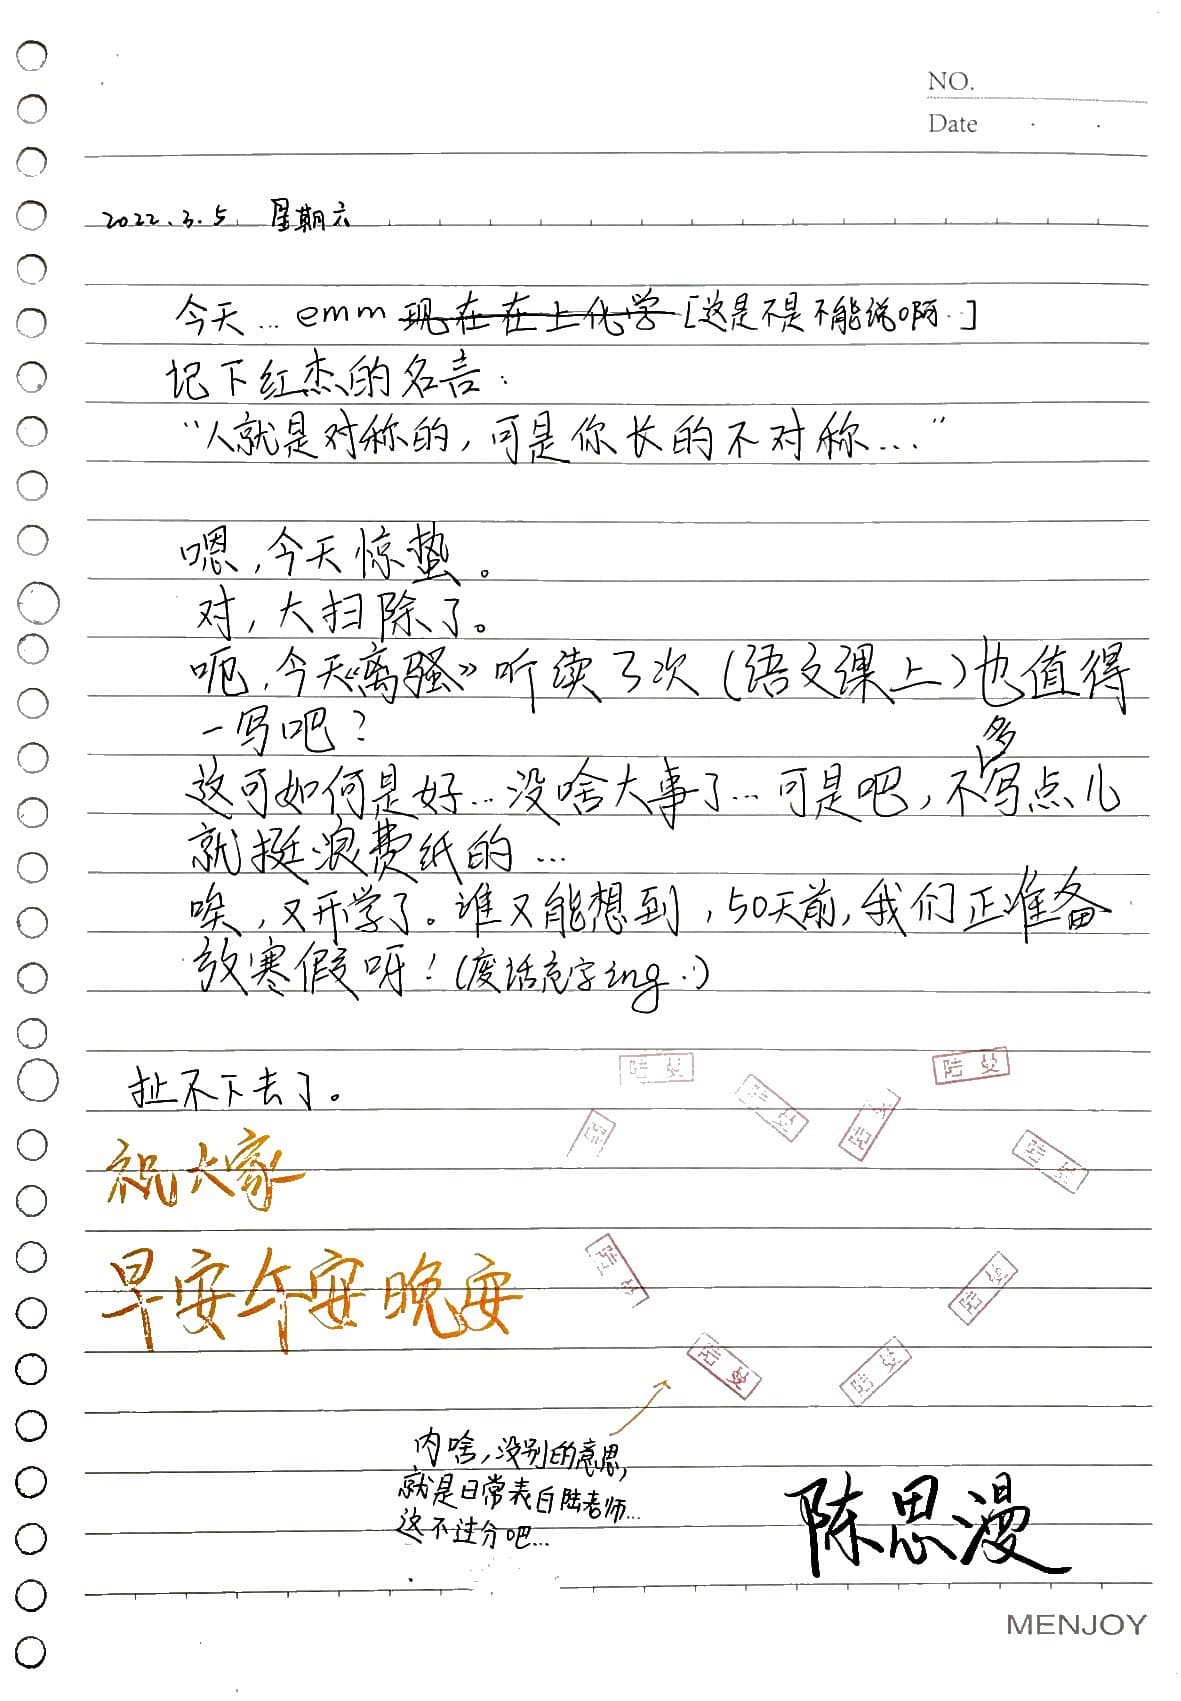 NO.
Date
2022.3.5 星期六
今天... emm 现在在上化学 [这是不是不能说啊..]
记下红杰的名言：
“人就是对称的，可是你长的不对称...”
嗯，今天惊蛰。
对，大扫除了。
呃，今天《离骚》听读了次（语文课上）也值得
一写吧？
这可如何是好...没啥大事了...可是吧，不多写点儿
就挺浪费纸的...
唉，又开学了。谁又能想到，50天前，我们正准备
放寒假呀！（废话充字ing..）
扯不下去了。
陆曼
陆曼
陆曼
陆曼
陆
陆曼
祝大家
早安午安晚安
陆曼
陆曼
陆曼
陆曼
内啥，没别的意思，
就是日常表白陆老师...
这不过分吧...
陈思漫
MENJOY